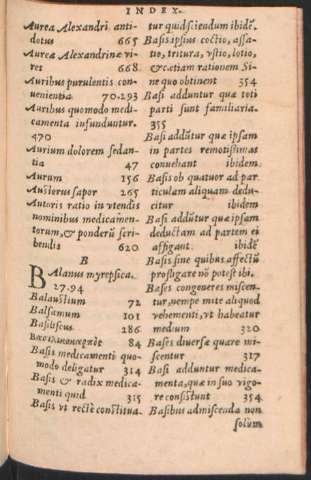 INDEX.
Aurea Alexandri anti-
dotus 665
Aurea Alexandrina vi-
res 668
Auribus purulentis con-
uenientia 70.293
Auribus quomodo medi-
camenta infunduntur.
470
Aurium dolorem sedan-
tia 47
Aurum 156
Austerus sapor 265
Autoris ratio in vtendis
nominibus medicamen-
torum, & ponderũ scri-
bendis 620
B
Balanus myrepsica.
27.94
Balaustium 72
Balsamum 101
Basiliscus 286
84
Basis medicamenti quo-
modo deligatur 314
Basis & radix medica-
menti quid 315
Basis vt recte constitua-
tur quid sciendum ibidẽ.
Basis ipsius coctio, assa-
tio, tritura, vstio, lotio,
& ætiam rationem Si-
ne quo obtinent 354
Basi adduntur quæ toti
parti sunt familiaria.
355
Basi addũtur quæ ipsam
in partes remotissimas
conuehant ibidem
Basis ob quatuor ad par-
ticulam aliquam dedu-
citur ibidem
Basi addũtur quæ ipsam
deductam ad partem ei
affigant. ibidẽ
Basis sine quibus affectũ
profligare nõ potest ibi.
Bases congeneres miscen-
tur, nempe mite aliquod
vehementi, vt habeatur
medium 320
Bases diuersæ quare mi-
scentur 317
Basi adduntur medica-
menta, quæ in suo vigo-
re consistunt 354
Basibus admiscenda non
solum